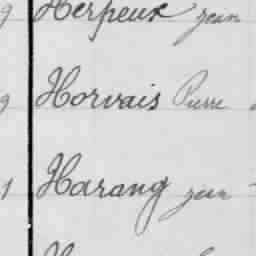 9 Herpeux jean
9 Horvais Pierre
1 Harang jean